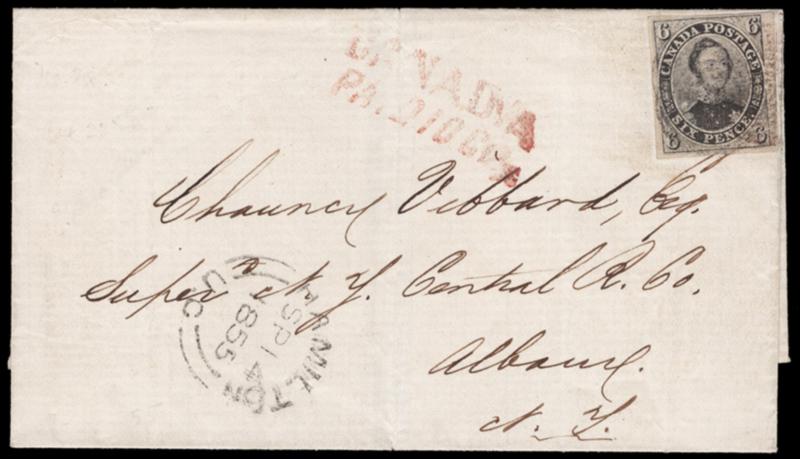 6 CANADA POSTAGE 6
6 SIX PENCE 6
CANADA
PAID 10 Cts
Chauncey Vibbard, Esq.
Super^n N. Y. Central R. Co.
Albany.
N. Y.
HAMILTON
SP 14
1855
U.C